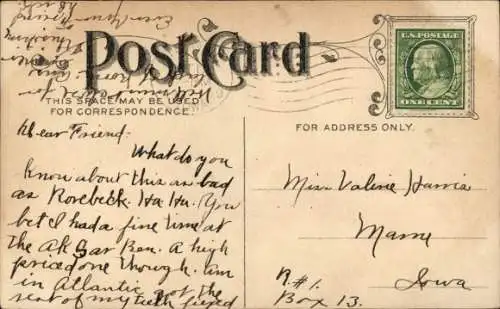 Post Card
U.S. POSTAGE
ONE CENT
THIS SPACE MAY BE USED
FOR CORRESPONDENCE
FOR ADDRESS ONLY.
Dear Friend:
What do you
know about this as bad
as Rosebeck. Ha Ha. You
bet I had a fine time at
the Ak Sar Ben. A high
priced one though. Am
in Atlantic got the
rest of my teeth fixed
Miss Valerie Harris
Marne
Iowa
R#1.
Box 13.